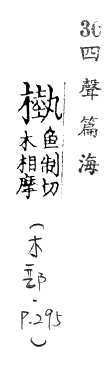 30
四聲篇海
槸
鱼制切
木相摩
(木部·P.295)